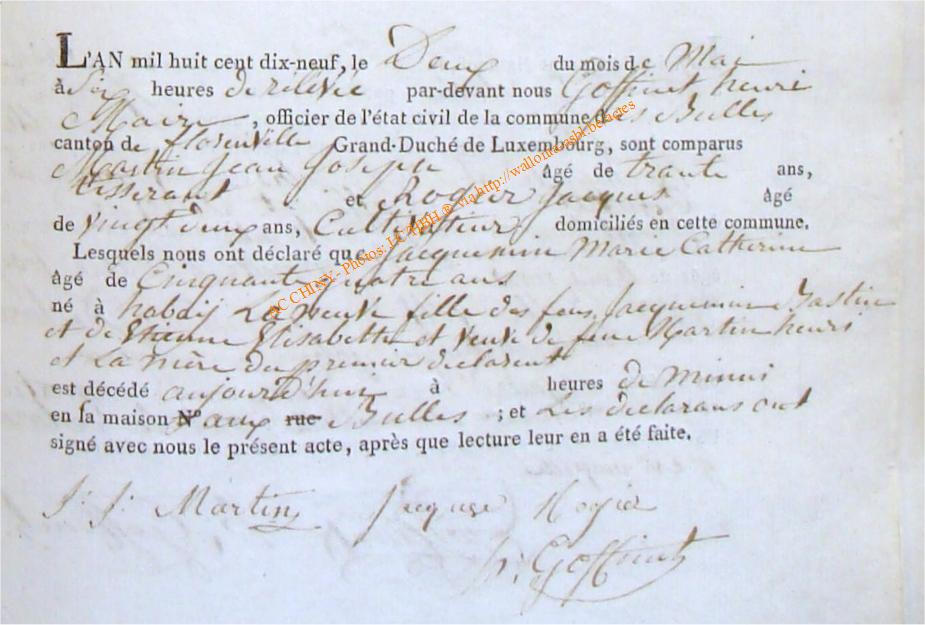 L'AN mil huit cent dix-neuf, le Deux du mois de Mai
à Six heures de rélévée par-devant nous Goffinet henri
Maire, officier de l'état civil de la commune des Bulles
canton de florenville Grand-Duché de Luxembourg, sont comparus
Martin Jean Joseph âgé de trante ans,
tisserant et Rogier Jacques âgé
de vingt deux ans, Cultivateur domiciliés en cette commune.
Lesquels nous ont déclaré que Jacquemin Marie Catherine
âgé de Cinquante quatre ans
né à habaÿ La neuve fille des feus Jacquemin Bastin
et de Etienne Elisabette et veuve de feu Martin henri
et La mère du premier declarent
est décédé aujourd'hui à heures de minui
en sa maison N° aux rue Bulles ; et Les declarans ont
signé avec nous le présent acte, après que lecture leur en a été faite.
J: J: Martin Jacque Rogier
h; Goffinet
AC CHINY - Photos: LUXBH ® via http://wallonia.asbl.be/actes